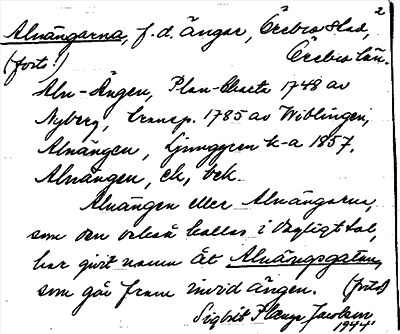 2
Alnängarna, f.d. ängar, Örebro stad,
Örebro län.
(forts!)
Aln-Ängen, Plan-Charta 1748 av
Nyberg, transp. 1785 av Wiblingen,
Alnängen, Ljunggren k-a 1857.
Alnängen, ek,
Alnängen eller Alnängarna,
som den också kallas i dagligt tal,
har givit namn åt Alnängsgatan,
som går fram invid ängen. (forts)
Sigbrit Plænge Jacobson
1944